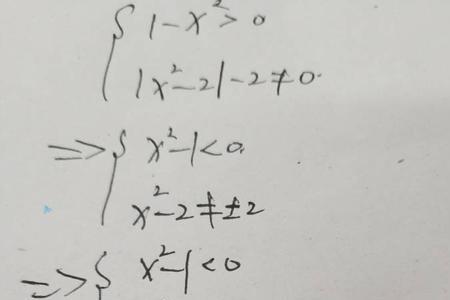 { 1-x²>0
|x²-2|-2≠0.
=> { x²-1<0.
x²-2≠±2
=> { x²-1<0